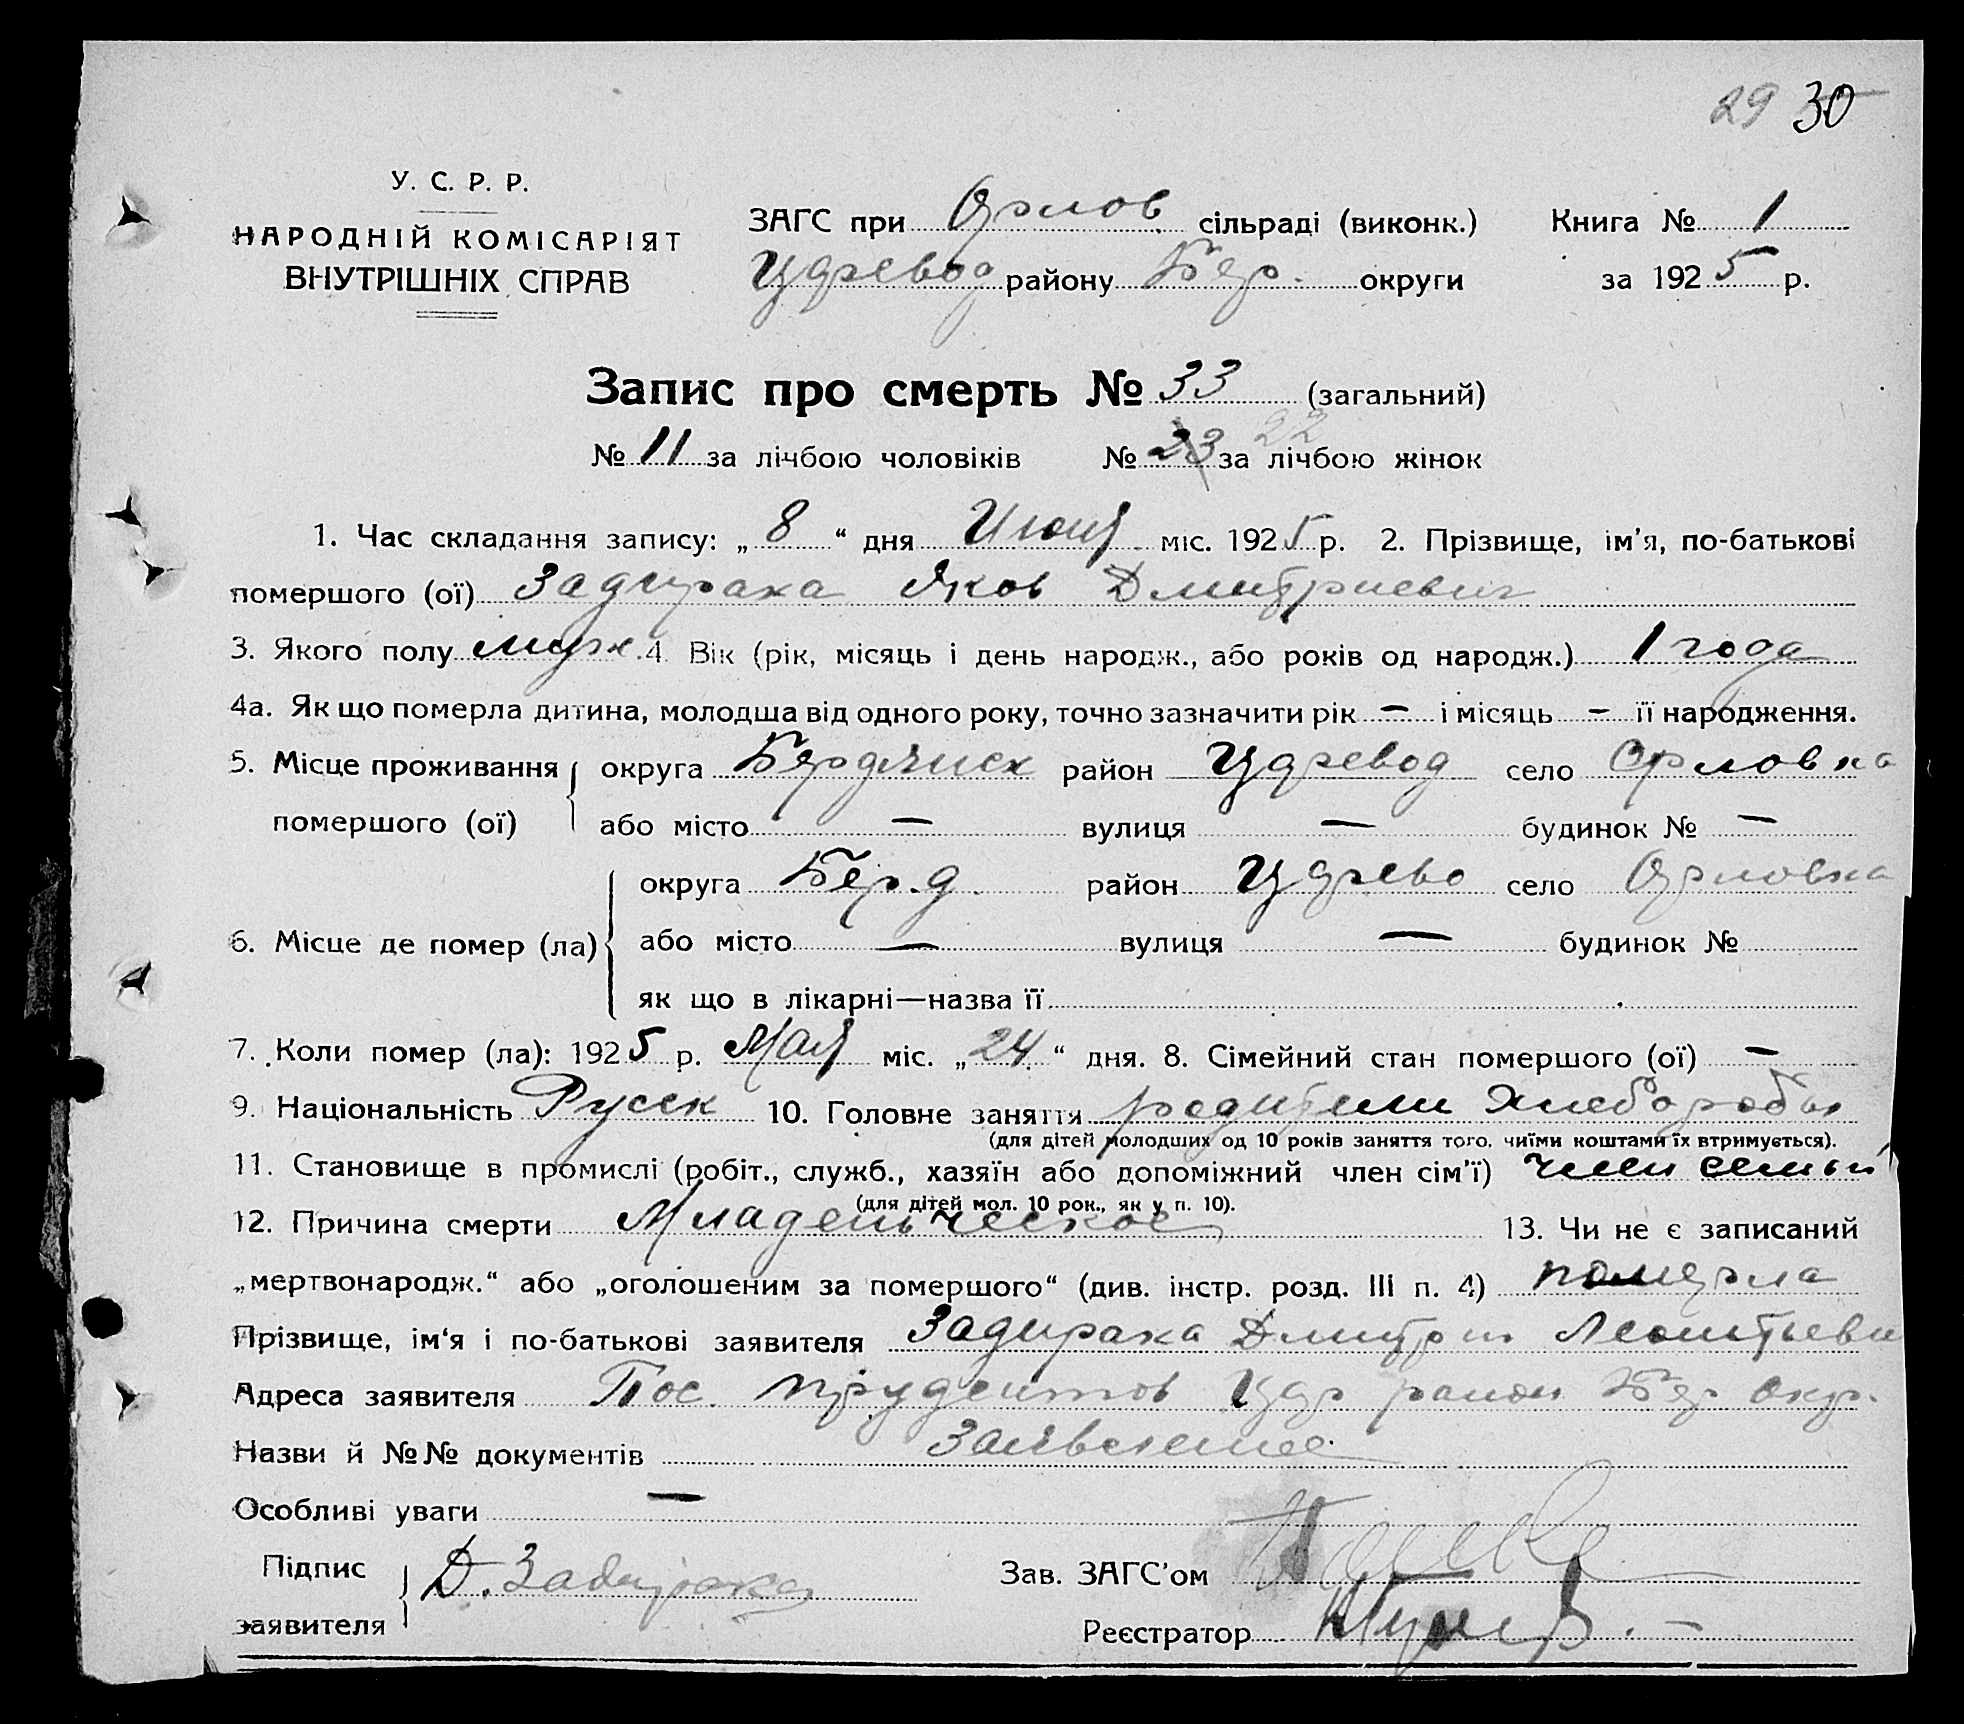 29 30
У. С. Р. Р.
НАРОДНІЙ КОМІСАРІЯТ
ВНУТРІШНІХ СПРАВ
ЗАГС при Орлов сільраді (виконк.) Книга № 1
Цдревод району Бер. округи за 1925 р.
Запис про смерть № 33 (загальний)
№ 11 за лічбою чоловіків № 23 22 за лічбою жінок
1. Час складання запису: „ 8 “ дня Июня міс. 1925 р. 2. Прізвище, ім'я, по-батькові
помершого (ої) Задирака Яков Дмитриевич
3. Якого полу муж. 4. Вік (рік, місяць і день народж., або років од народж.) 1 года
4а. Як що померла дитина, молодша від одного року, точно зазначити рік — і місяць — її народження.
5. Місце проживання округа Бердянск район Цдревод село Орловка
помершого (ої) або місто — вулиця — будинок № —
округа Бер.д. район Цдрево село Орловка
6. Місце де помер (ла) або місто — вулиця — будинок №
як що в лікарні—назва її
7. Коли помер (ла): 1925 р. Мая міс. „ 24 “ дня. 8. Сімейний стан помершого (ої) —
9. Національність Русск 10. Головне заняття родители Хлеборобы
(для дітей молодших од 10 років заняття того, чиїми коштами їх втримується).
11. Становище в промислі (робіт., служб., хазяїн або допоміжний член сім'ї) член семьи
(для дітей мол. 10 рок., як у п. 10).
12. Причина смерти Младенческое 13. Чи не є записаний
„мертвонародж.“ або „оголошеним за помершого“ (див. інстр. розд. III п. 4) померла
Прізвище, ім'я і по-батькові заявителя Задирака Дмитрий Леонтьеви
Адреса заявителя Пос. Цдр район Бер окр.
Назви й №№ документів Заявление
Особливі уваги —
Підпис заявителя Д. Задирака
Зав. ЗАГС'ом
Реєстратор